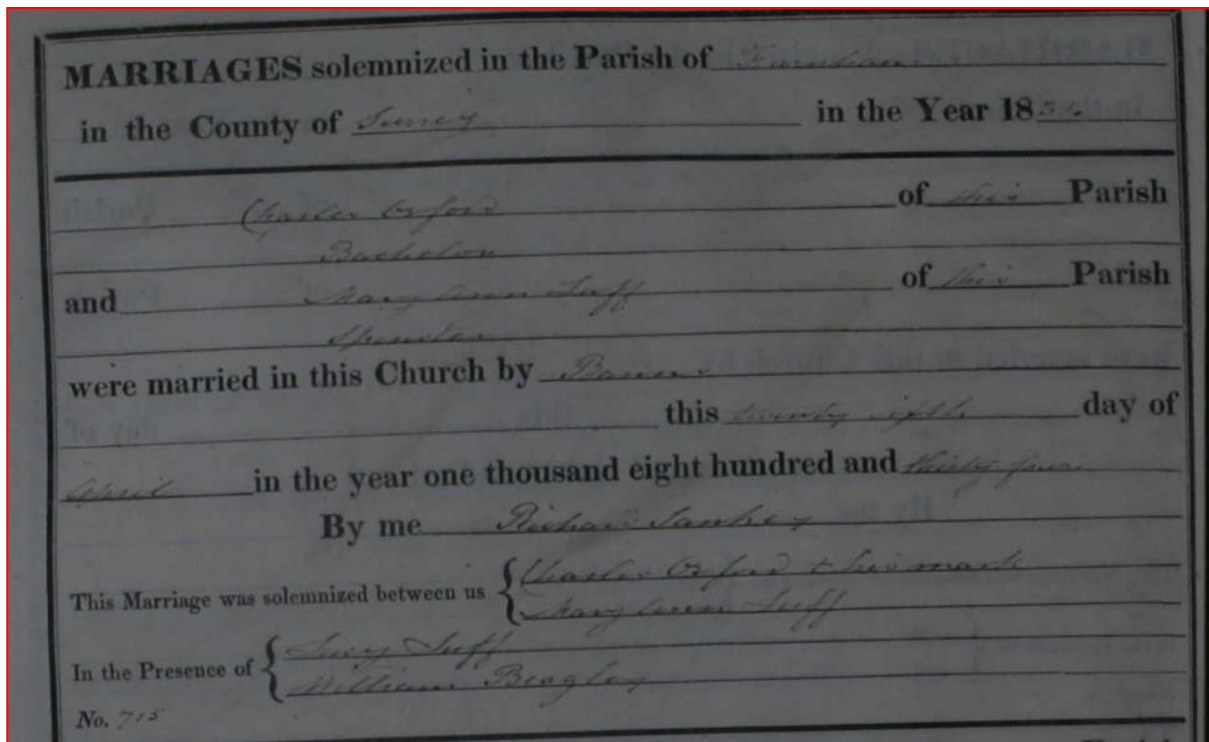 MARRIAGES solemnized in the Parish of Farnham
in the County of Surrey in the Year 1834
Charles Orford of this Parish
Bachelor
and Mary Ann Tuff of this Parish
Spinster
were married in this Church by Banns
this twenty sixth day of
April in the year one thousand eight hundred and thirty four
By me Richard Sankey
This Marriage was solemnized between us { Charles Orford + his mark
Mary Ann Tuff
In the Presence of { Lucy Tuff
William Beagley
No. 715
Parish